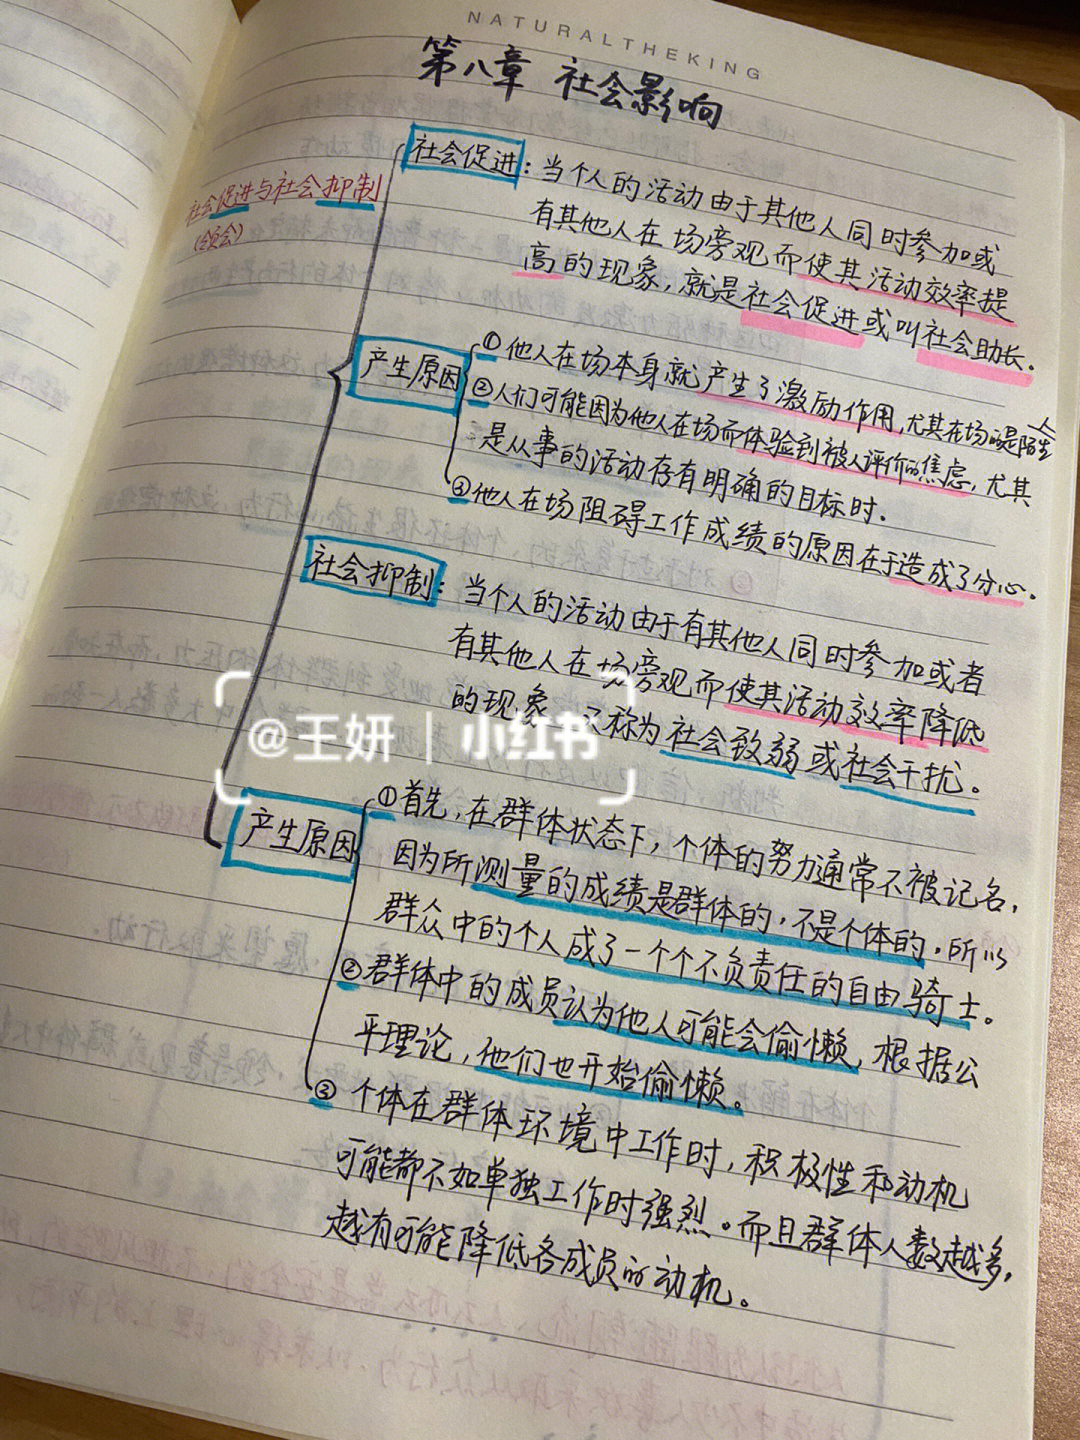 NATURALTHEKING
第八章 社会影响
社会促进与社会抑制
(领会)
社会促进：当个人的活动由于其他人同时参加或
有其他人在场旁观而使其活动效率提
高的现象，就是社会促进或叫社会助长.
产生原因
①他人在场本身就产生了激励作用，尤其在场的是陌生人
②人们可能因为他人在场而体验到被人评价的焦虑，尤其
是从事的活动存有明确的目标时.
③他人在场阻碍工作成绩的原因在于造成了分心.
社会抑制：当个人的活动由于有其他人同时参加或者
有其他人在场旁观而使其活动效率降低
的现象 又称为社会致弱或社会干扰。
@王妍 | 小红书
产生原因
①首先,在群体状态下，个体的努力通常不被记名，
因为所测量的成绩是群体的，不是个体的.所以
群众中的个人成了一个个不负责任的自由骑士。
②群体中的成员认为他人可能会偷懒，根据公
平理论，他们也开始偷懒。
③个体在群体环境中工作时，积极性和动机
可能都不如单独工作时强烈。而且群体人数越多，
越有可能降低各成员的动机。